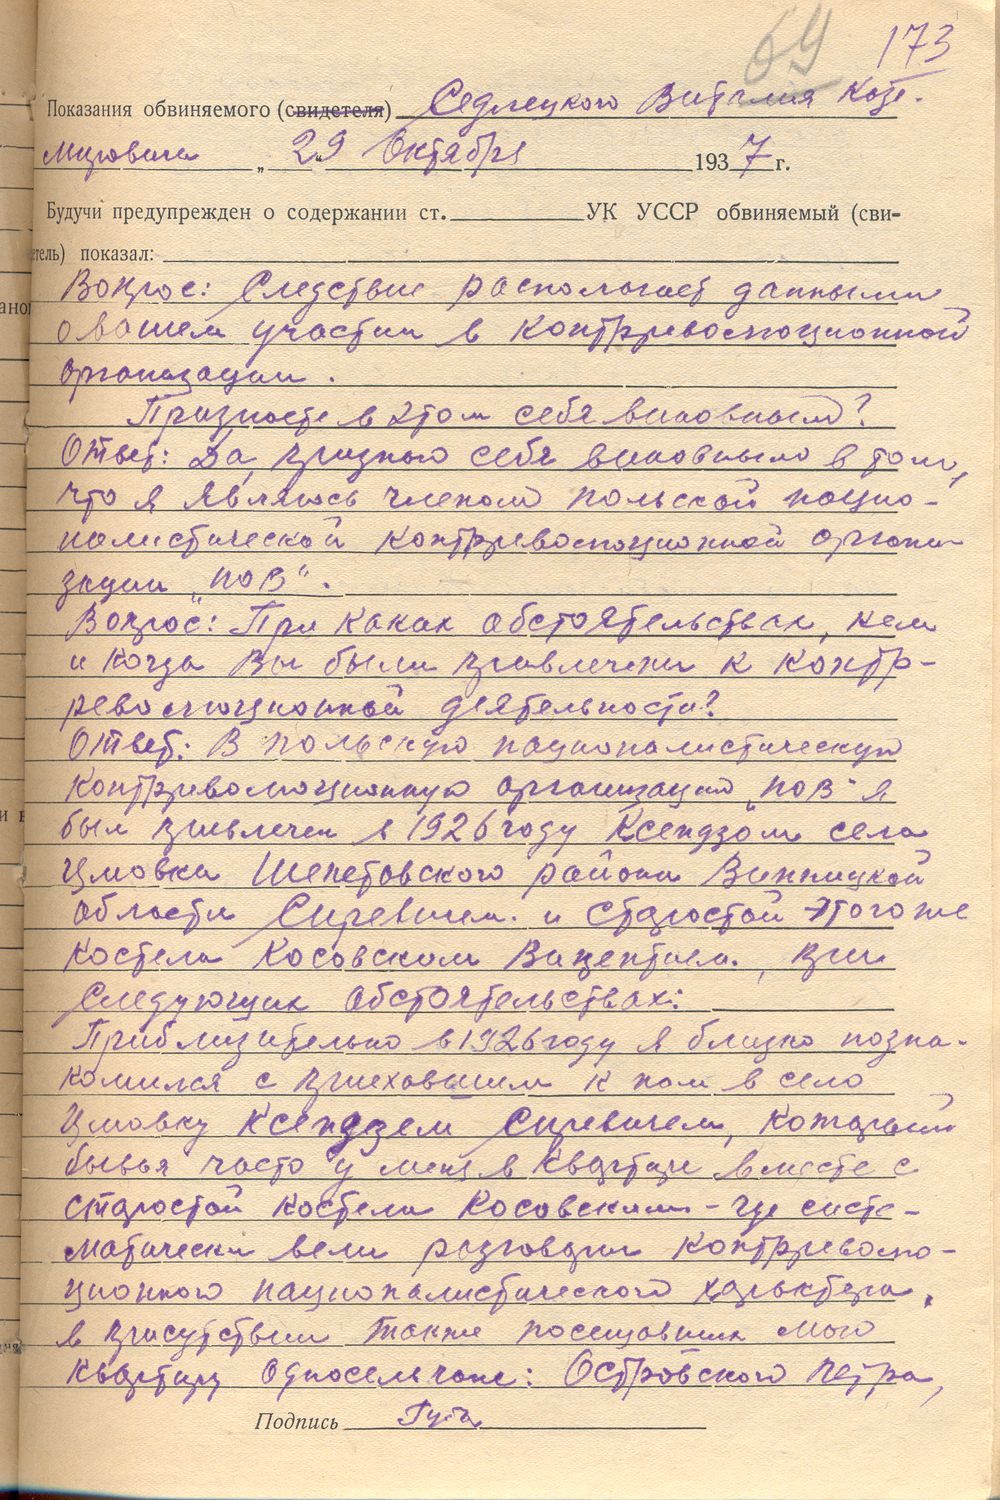 69
173
Показания обвиняемого (свидетеля) Седлецкого Виталия Кази-
мировича „ 29 Октября 1937 г.
Будучи предупрежден о содержании ст. УК УССР обвиняемый (сви-
етель) показал:
Вопрос: Следствие распологает данными
о вашем участии в контрреволюционной
организации.
Признаете в этом себя виновным?
Ответ: Да, признаю себя виновным в том,
что я являюсь членом польской нацио-
налистической контрреволюционной органи-
зации „ПОВ".
Вопрос: При каких обстоятельствах, кем
и когда Вы были привлечены к контр-
революционной деятельности?
Ответ: В польскую националистическую
контрреволюционную организацию „ПОВ" я
был привлечен в 1926 году Ксендзом села
Цмовка Шепетовского района Винницкой
области и старостой этого же
костела Косовским Викентием, при
следующих обстоятельствах:
Приблизительно в 1926 году я близко позна-
комился с приехавшим к нам в село
Цмовку ксендзем который
бывая часто у меня в квартире вместе с
старостой костела Косовским - где систе-
матически вели разговоры контрреволю-
ционного националистического характера,
в присутствии также посещавших мою
квартиру односельчане: Островского Петра,
Подпись